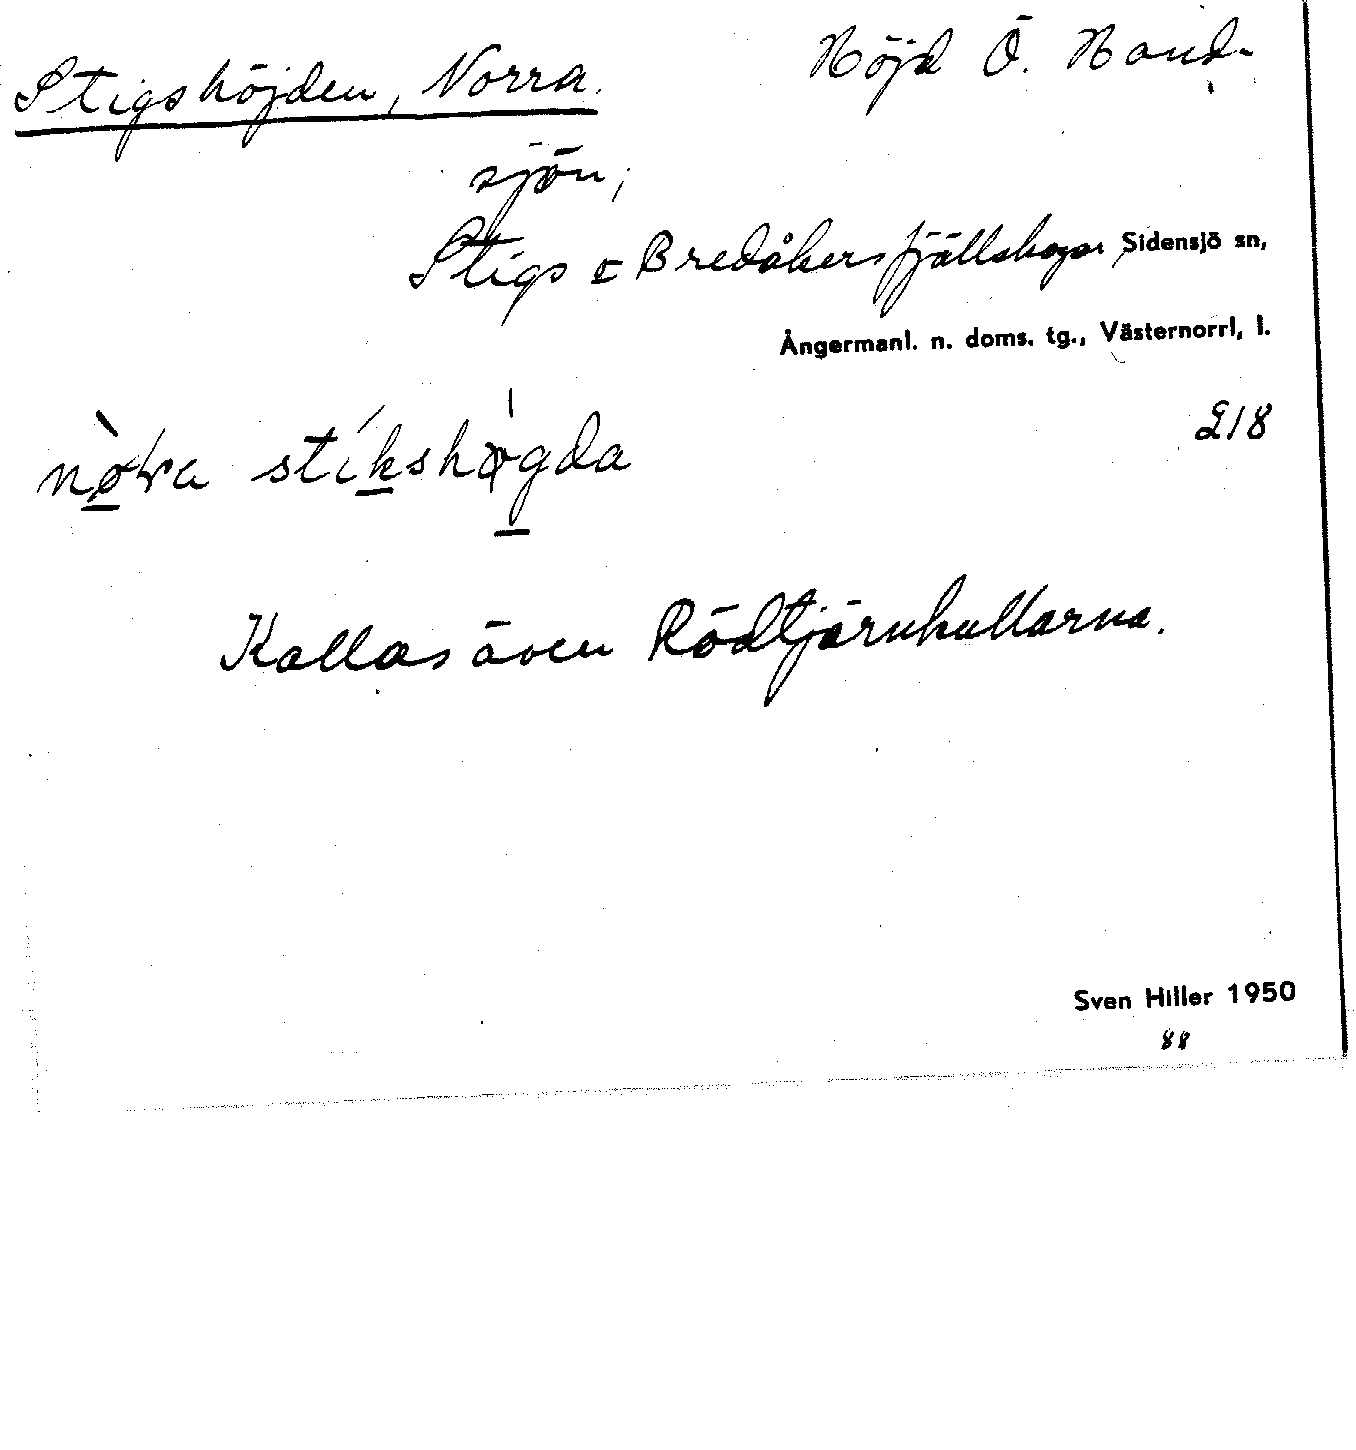 Stigshöjden, Norra.
Höjd Ö. Hand-
sjön;
Stigs o Bredåkers fjällskogar Sidensjö sn,
Ångermanl. n. doms. tg., Västernorrl, l.
218
nòra stíkshøgda
Kallas även Rödtjärnkullarna.
Sven Hiller 1950
88